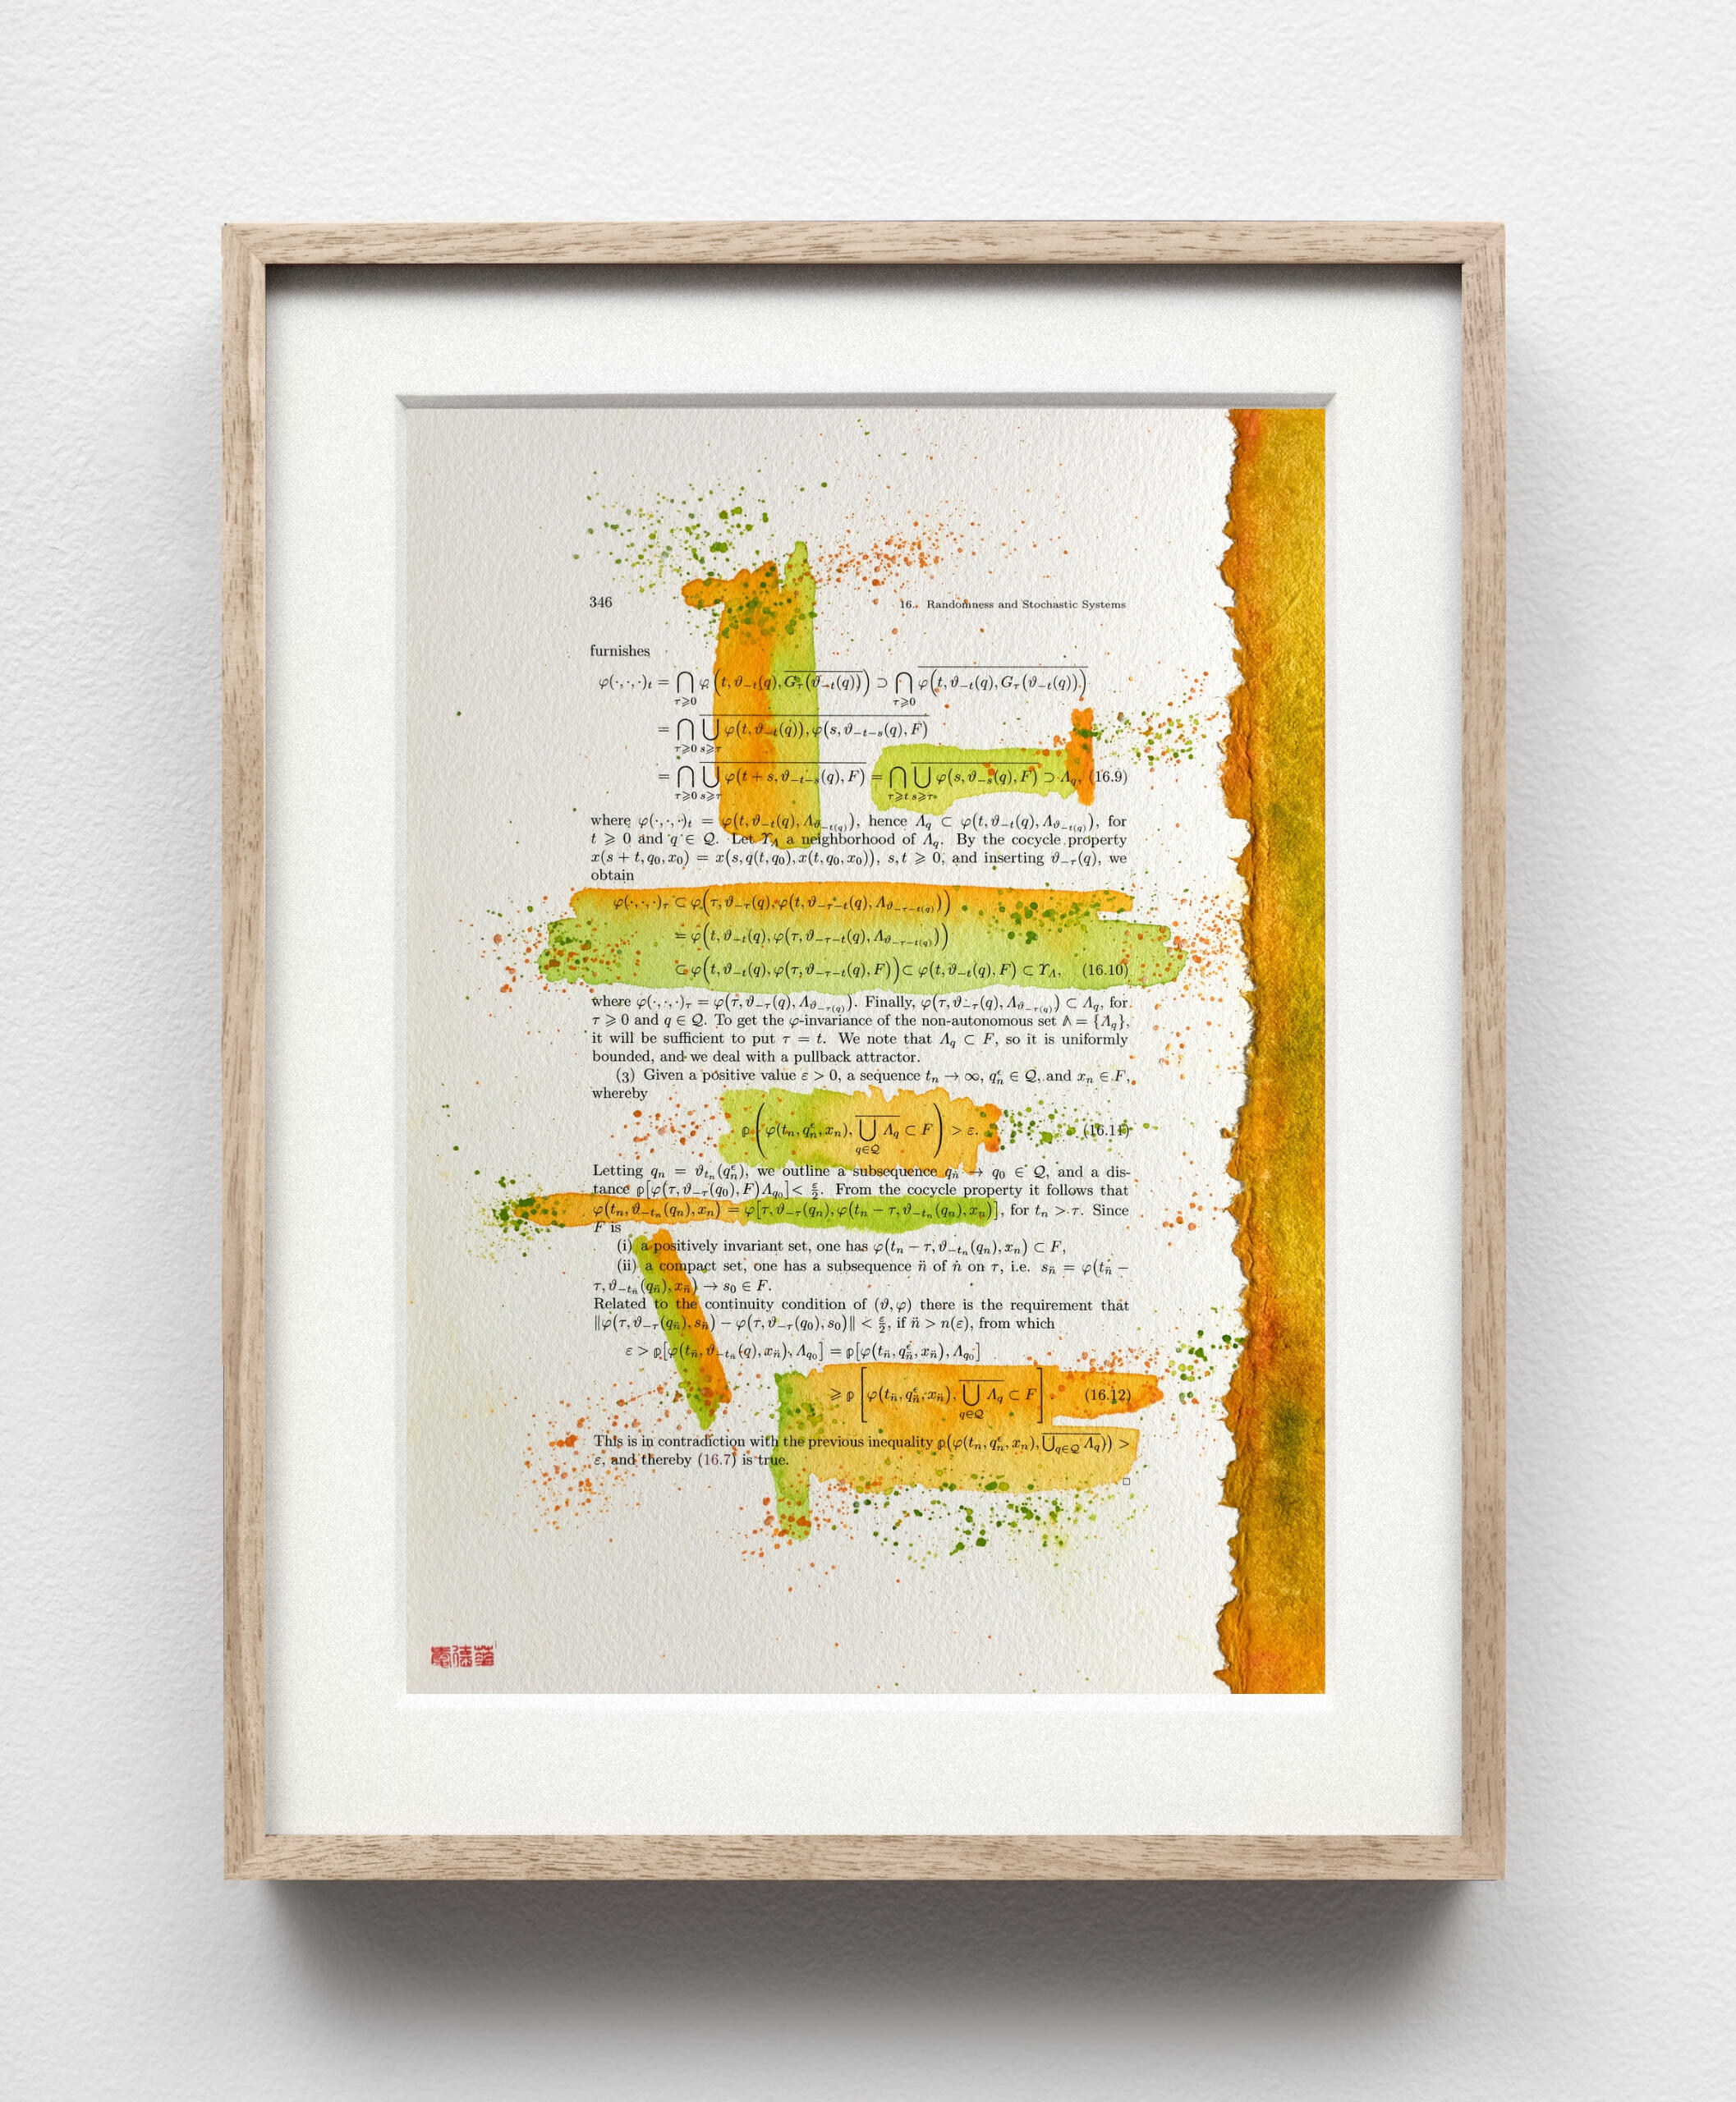 346
16. Randomness and Stochastic Systems
furnishes
φ(·,·,·)ₜ = ⋂_{τ⩾0} φ(t, ϑ₋ₜ(q), \overline{G_τ(ϑ₋ₜ(q))}) ⊃ ⋂_{τ⩾0} \overline{φ(t, ϑ₋ₜ(q), G_τ(ϑ₋ₜ(q)))}
= ⋂_{τ⩾0} \overline{⋃_{s⩾τ} φ(t, ϑ₋ₜ(q)), φ(s, ϑ_{−t−s}(q), F)}
= ⋂_{τ⩾0} \overline{⋃_{s⩾τ} φ(t + s, ϑ_{−t−s}(q), F)} = ⋂_{τ⩾t} \overline{⋃_{s⩾τ} φ(s, ϑ_{−s}(q), F)} ⊃ Λ_q, (16.9)
where φ(·,·,·)ₜ = φ(t, ϑ₋ₜ(q), Λ_{ϑ_{−t(q)}}), hence Λ_q ⊂ φ(t, ϑ₋ₜ(q), Λ_{ϑ_{−t(q)}}), for
t ⩾ 0 and q ∈ 𝒬. Let ϒ_Λ a neighborhood of Λ_q. By the cocycle property
x(s + t, q₀, x₀) = x(s, q(t, q₀), x(t, q₀, x₀)), s, t ⩾ 0, and inserting ϑ_{−τ}(q), we
obtain
φ(·,·,·)_τ ⊂ φ(τ, ϑ_{−τ}(q), φ(t, ϑ_{−τ−t}(q), Λ_{ϑ_{−τ−t(q)}}))
= φ(t, ϑ_{−t}(q), φ(τ, ϑ_{−τ−t}(q), Λ_{ϑ_{−τ−t(q)}}))
⊂ φ(t, ϑ_{−t}(q), φ(τ, ϑ_{−τ−t}(q), F)) ⊂ φ(t, ϑ_{−t}(q), F) ⊂ ϒ_Λ, (16.10)
where φ(·,·,·)_τ = φ(τ, ϑ_{−τ}(q), Λ_{ϑ_{−τ(q)}}). Finally, φ(τ, ϑ_{−τ}(q), Λ_{ϑ_{−τ(q)}}) ⊂ Λ_q, for
τ ⩾ 0 and q ∈ 𝒬. To get the φ-invariance of the non-autonomous set 𝔸 = {Λ_q},
it will be sufficient to put τ = t. We note that Λ_q ⊂ F, so it is uniformly
bounded, and we deal with a pullback attractor.
(3) Given a positive value ε > 0, a sequence tₙ → ∞, qₙ^ϵ ∈ 𝒬, and xₙ ∈ F,
whereby
𝕡(φ(tₙ, qₙ^ϵ, xₙ), \overline{⋃_{q∈𝒬} Λ_q} ⊂ F) > ε. (16.11)
Letting qₙ = ϑ_{tₙ}(qₙ^ϵ), we outline a subsequence q_{n̈} → q₀ ∈ 𝒬, and a dis-
tance 𝕡[φ(τ, ϑ_{−τ}(q₀), F)Λ_{q₀}] < ε/2. From the cocycle property it follows that
φ(tₙ, ϑ_{−tₙ}(qₙ), xₙ) = φ[τ, ϑ_{−τ}(qₙ), φ(tₙ − τ, ϑ_{−tₙ}(qₙ), xₙ)], for tₙ > τ. Since
F is
(i) a positively invariant set, one has φ(tₙ − τ, ϑ_{−tₙ}(qₙ), xₙ) ⊂ F,
(ii) a compact set, one has a subsequence n̈ of ṅ on τ, i.e. s_{n̈} = φ(t_{n̈} −
τ, ϑ_{−t_{n̈}}(q_{n̈}), x_{n̈}) → s₀ ∈ F.
Related to the continuity condition of (ϑ, φ) there is the requirement that
‖φ(τ, ϑ_{−τ}(q_{n̈}), s_{n̈}) − φ(τ, ϑ_{−τ}(q₀), s₀)‖ < ε/2, if n̈ > n(ε), from which
ε > 𝕡[φ(t_{n̈}, ϑ_{−t_{n̈}}(q), x_{n̈}), Λ_{q₀}] = 𝕡[φ(t_{n̈}, q_{n̈}^ϵ, x_{n̈}), Λ_{q₀}]
⩾ 𝕡[φ(t_{n̈}, q_{n̈}^ϵ, x_{n̈}), \overline{⋃_{q∈𝒬} Λ_q} ⊂ F]. (16.12)
This is in contradiction with the previous inequality 𝕡(φ(tₙ, qₙ^ϵ, xₙ), \overline{⋃_{q∈𝒬} Λ_q})) >
ε, and thereby (16.7) is true.
□